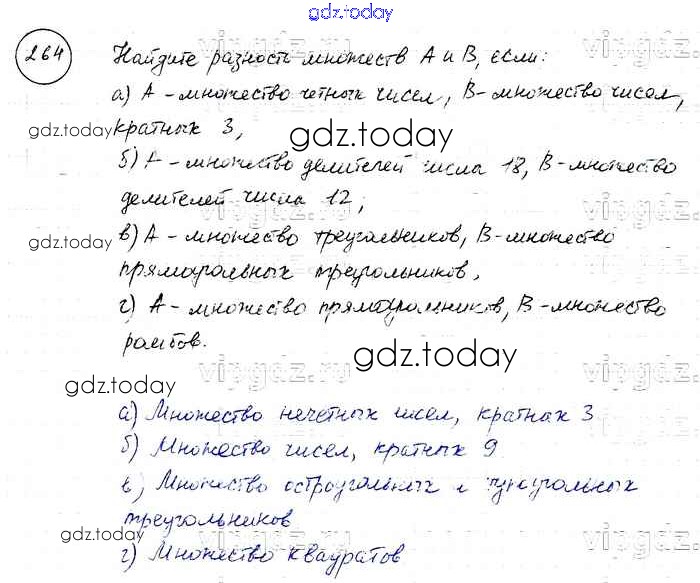 gdz.today
264
Найдите разность множеств А и В, если:
а) А - множество четных чисел, В - множество чисел,
кратных 3,
gdz.today
gdz.today
б) А - множество делителей числа 18, В - множество
делителей числа 12;
в) А - множество треугольников, В - множество
gdz.today
прямоугольных треугольников,
г) А - множество прямоугольников, В - множество
ромбов.
gdz.today
gdz.today
а) Множество нечетных чисел, кратных 3
б) Множество чисел, кратных 9
в) Множество остроугольных и тупоугольных
треугольников
gdz.today
г) Множество квадратов
gdz.today